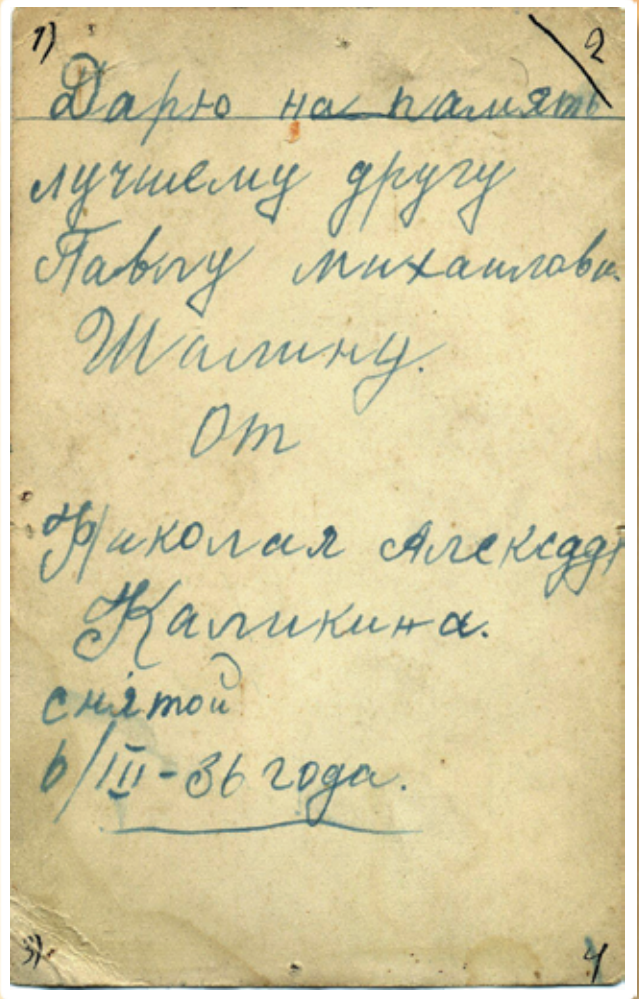 1) 2
Дарю на память
лучшему другу
Павлу михаиловн.
Шалину.
От
Николая Алексадр
Каликина.
снятой
6/III-36 года.
3) 4